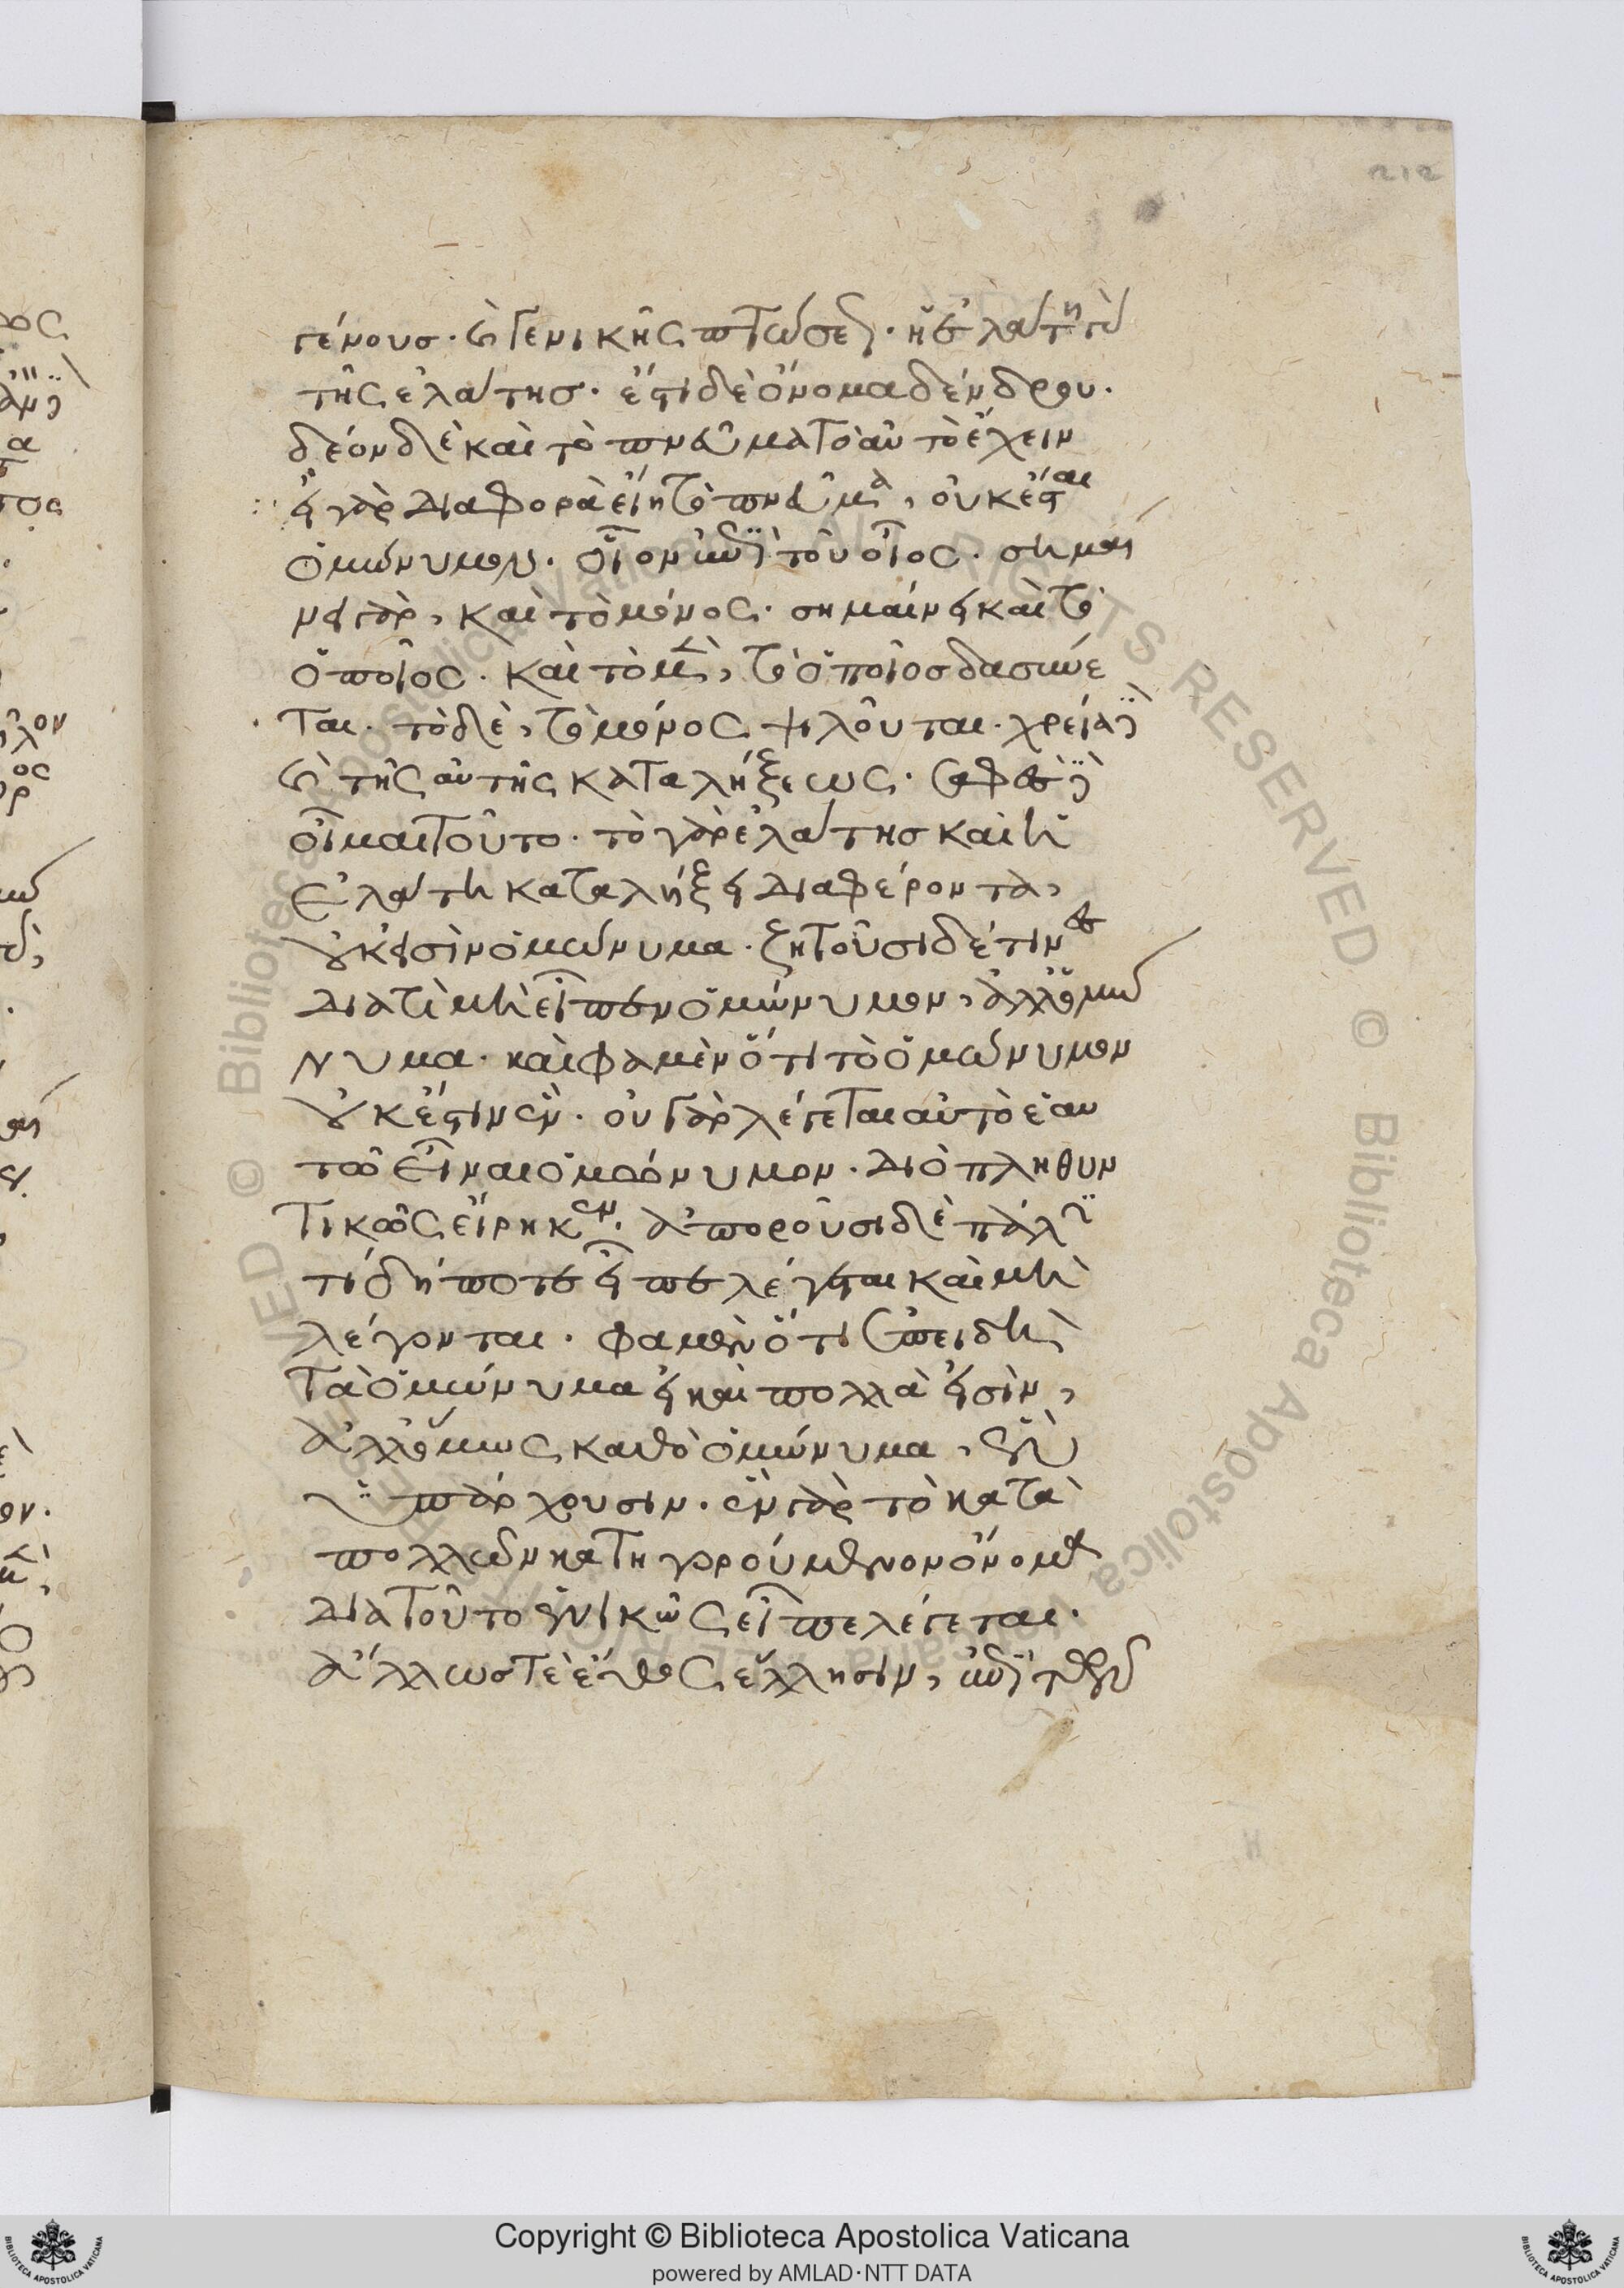 212
γένους· καὶ γενικῆς πτώσεως· ἡ ἐλάτη τῶ
τῆς ἐλάτης· ἔστι δὲ ὄνομα δένδρου·
δέον δὲ καὶ τὸ πνεῦμα τὸ αὐτὸ ἔχειν
εἰ γὰρ διάφορα εἴη τὸ πνεῦμα, οὐκ ἔσται
ὁμώνυμον· οἷον ἐπὶ τοῦ οἶος· σημαί
νει γὰρ, καὶ τὸ μόνος· σημαίνει καὶ τὸ
ὁποῖος· καὶ τὸ μὲν, τὸ ὁποῖος δασύνε
ται· τὸ δὲ, τὸ μόνος ψιλοῦται· χρεία
καὶ τῆς αὐτῆς καταλήξεως· σαφὲς
οἶμαι τοῦτο· τὸ γὰρ ἐλάτης καὶ ἡ
ἐλάτη καταλήξει διαφέροντα,
οὐκ εἰσὶν ὁμώνυμα· ζητοῦσι δέ τινες
διατί μὴ εἶπεν ὁμώνυμον, ἀλλ' ὁμώ
νυμα· καὶ φαμὲν ὅτι τὸ ὁμώνυμον
οὐκ ἔστιν ἕν· οὐ γὰρ λέγεται αὐτὸ ἑαυ
τῶ εἶναι ὁμώνυμον· διὸ πληθυν
τικῶς εἴρηκεν· ἀποροῦσι δὲ πάλιν
τί δήποτε εἶπε λέγεται καὶ μὴ
λέγονται· φαμὲν ὅτι ἐπειδὴ
τὰ ὁμώνυμα εἰ καὶ πολλὰ εἰσὶν,
ἀλλ' ὅμως καθὸ ὁμώνυμα, ἓν
ὑπάρχουσιν· ἓν γὰρ τὸ κατὰ
πολλῶν κατηγορούμενον ὄνομα
διὰ τοῦτο ἑνικῶς εἶπε λέγεται·
ἄλλωστε ἔθος ἕλλησιν, ἐπὶ τῶν
Copyright © Biblioteca Apostolica Vaticana
powered by AMLAD·NTT DATA